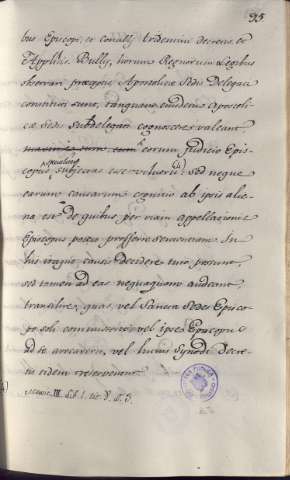 95
bus Episcopi, et Concilij tridentini decretis, et
Applicis Bullis, horum Regnorum Legibus
observari præceptis Apostolicæ Sedis Delegati
constituti sunt, tanquam ejusdem Apostoli-
cæ Sedis Subdelegati cognoscere valeant
eorum judicio Epis-
copos subjectas esse voluerit: sed neque
earum causarum cognitio ab ipsis alie-
na est de quibus per viam appellationis
Episcopus potest proferre sententiam. In
his itaque causis decidere tuto possunt,
sed tamen ad eas nequaquam audeant
transilire, quas vel Sancta Sedes Episco-
po soli commiserit, vel ipse Episcopus
ad se avocaverit, vel hujus Synodi Decre-
tis eidem reserventur.
Mexic. III. Lib. 1. tit. 8. §. 3.